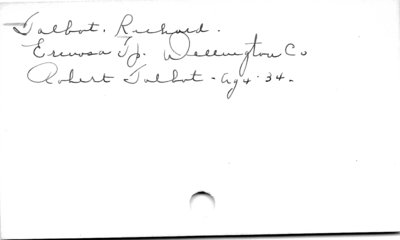 Talbot. Richard.
Eramosa Tp. Wellington Co
Robert Talbot - Ag 4 - 34 -